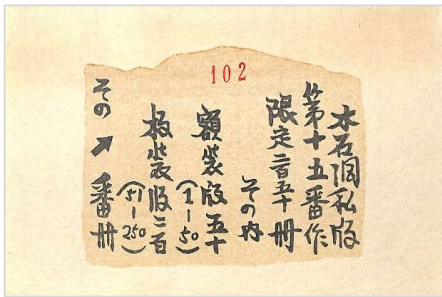 102
木石洞私版
第十五番作
限定二百五十冊
その内
額装版五十
(1-50)
板装版二百
(51-250)
その↗番冊